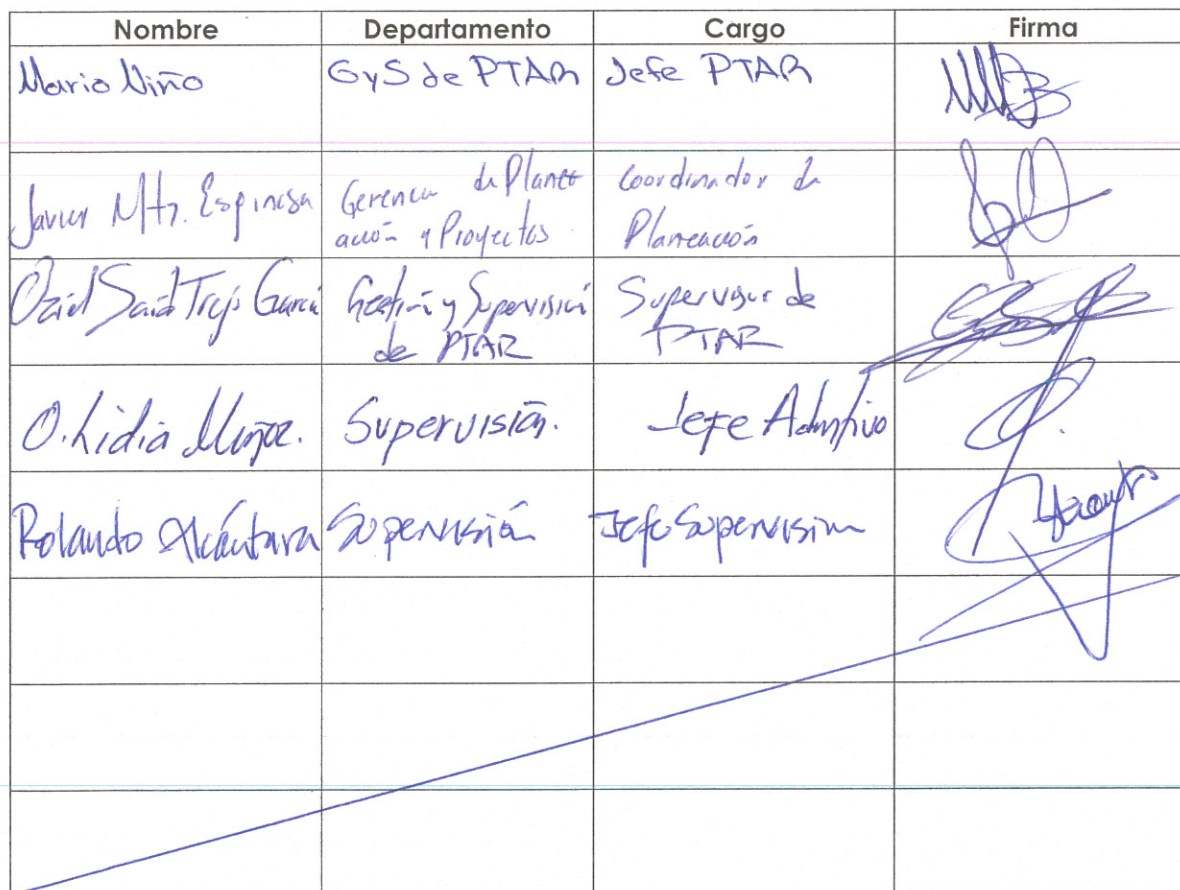 Nombre Departamento Cargo Firma
Mario Niño GyS de PTAR Jefe PTAR
Javier Mtz. Espinosa Gerencia de Planeación y Proyectos Coordinador de Planeación
Said Trejo García Gestión y Supervisión de PTAR Supervisor de PTAR
O. Lidia Muñoz. Supervisión. Jefe Admtivo
Rolando Alcántara Supervisión Jefe Supervisión